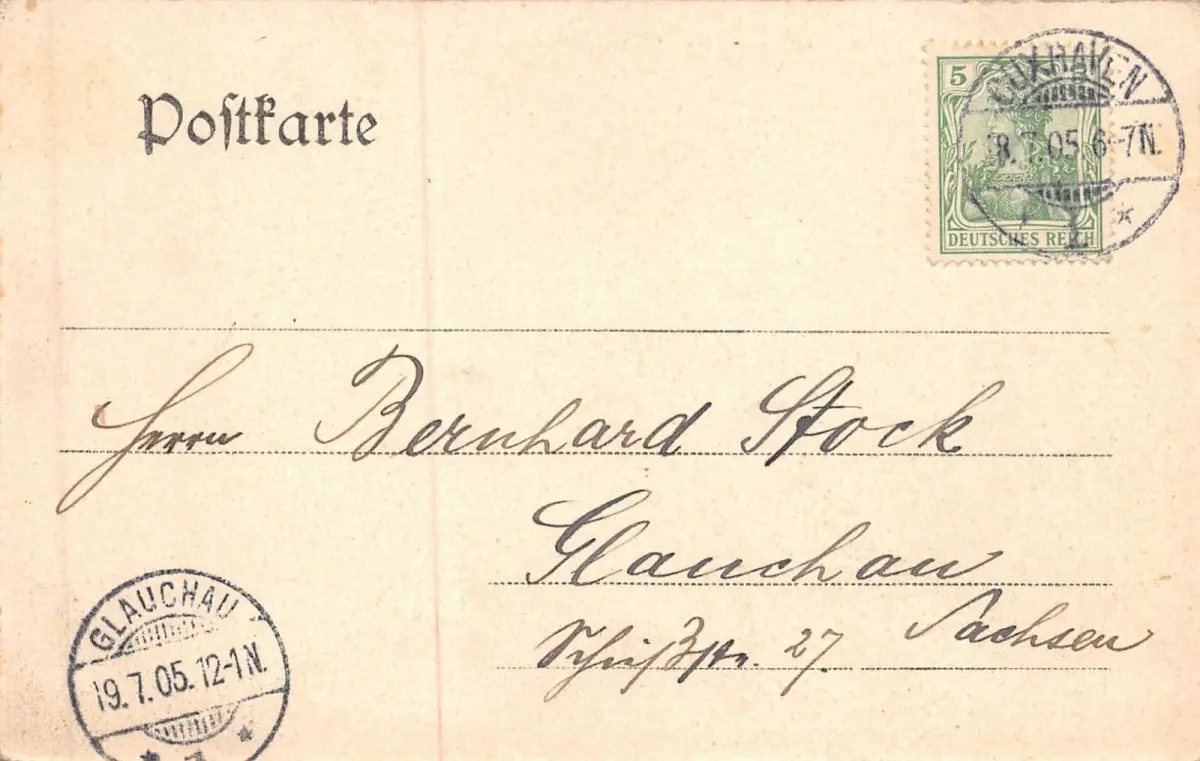 Postkarte
5
DEUTSCHES REICH
CUXHAVEN
8.7.05 6-7N.
1
Herrn Bernhard Stock
Glauchau
Sachsen
27.
GLAUCHAU
19.7.05.12-1N.